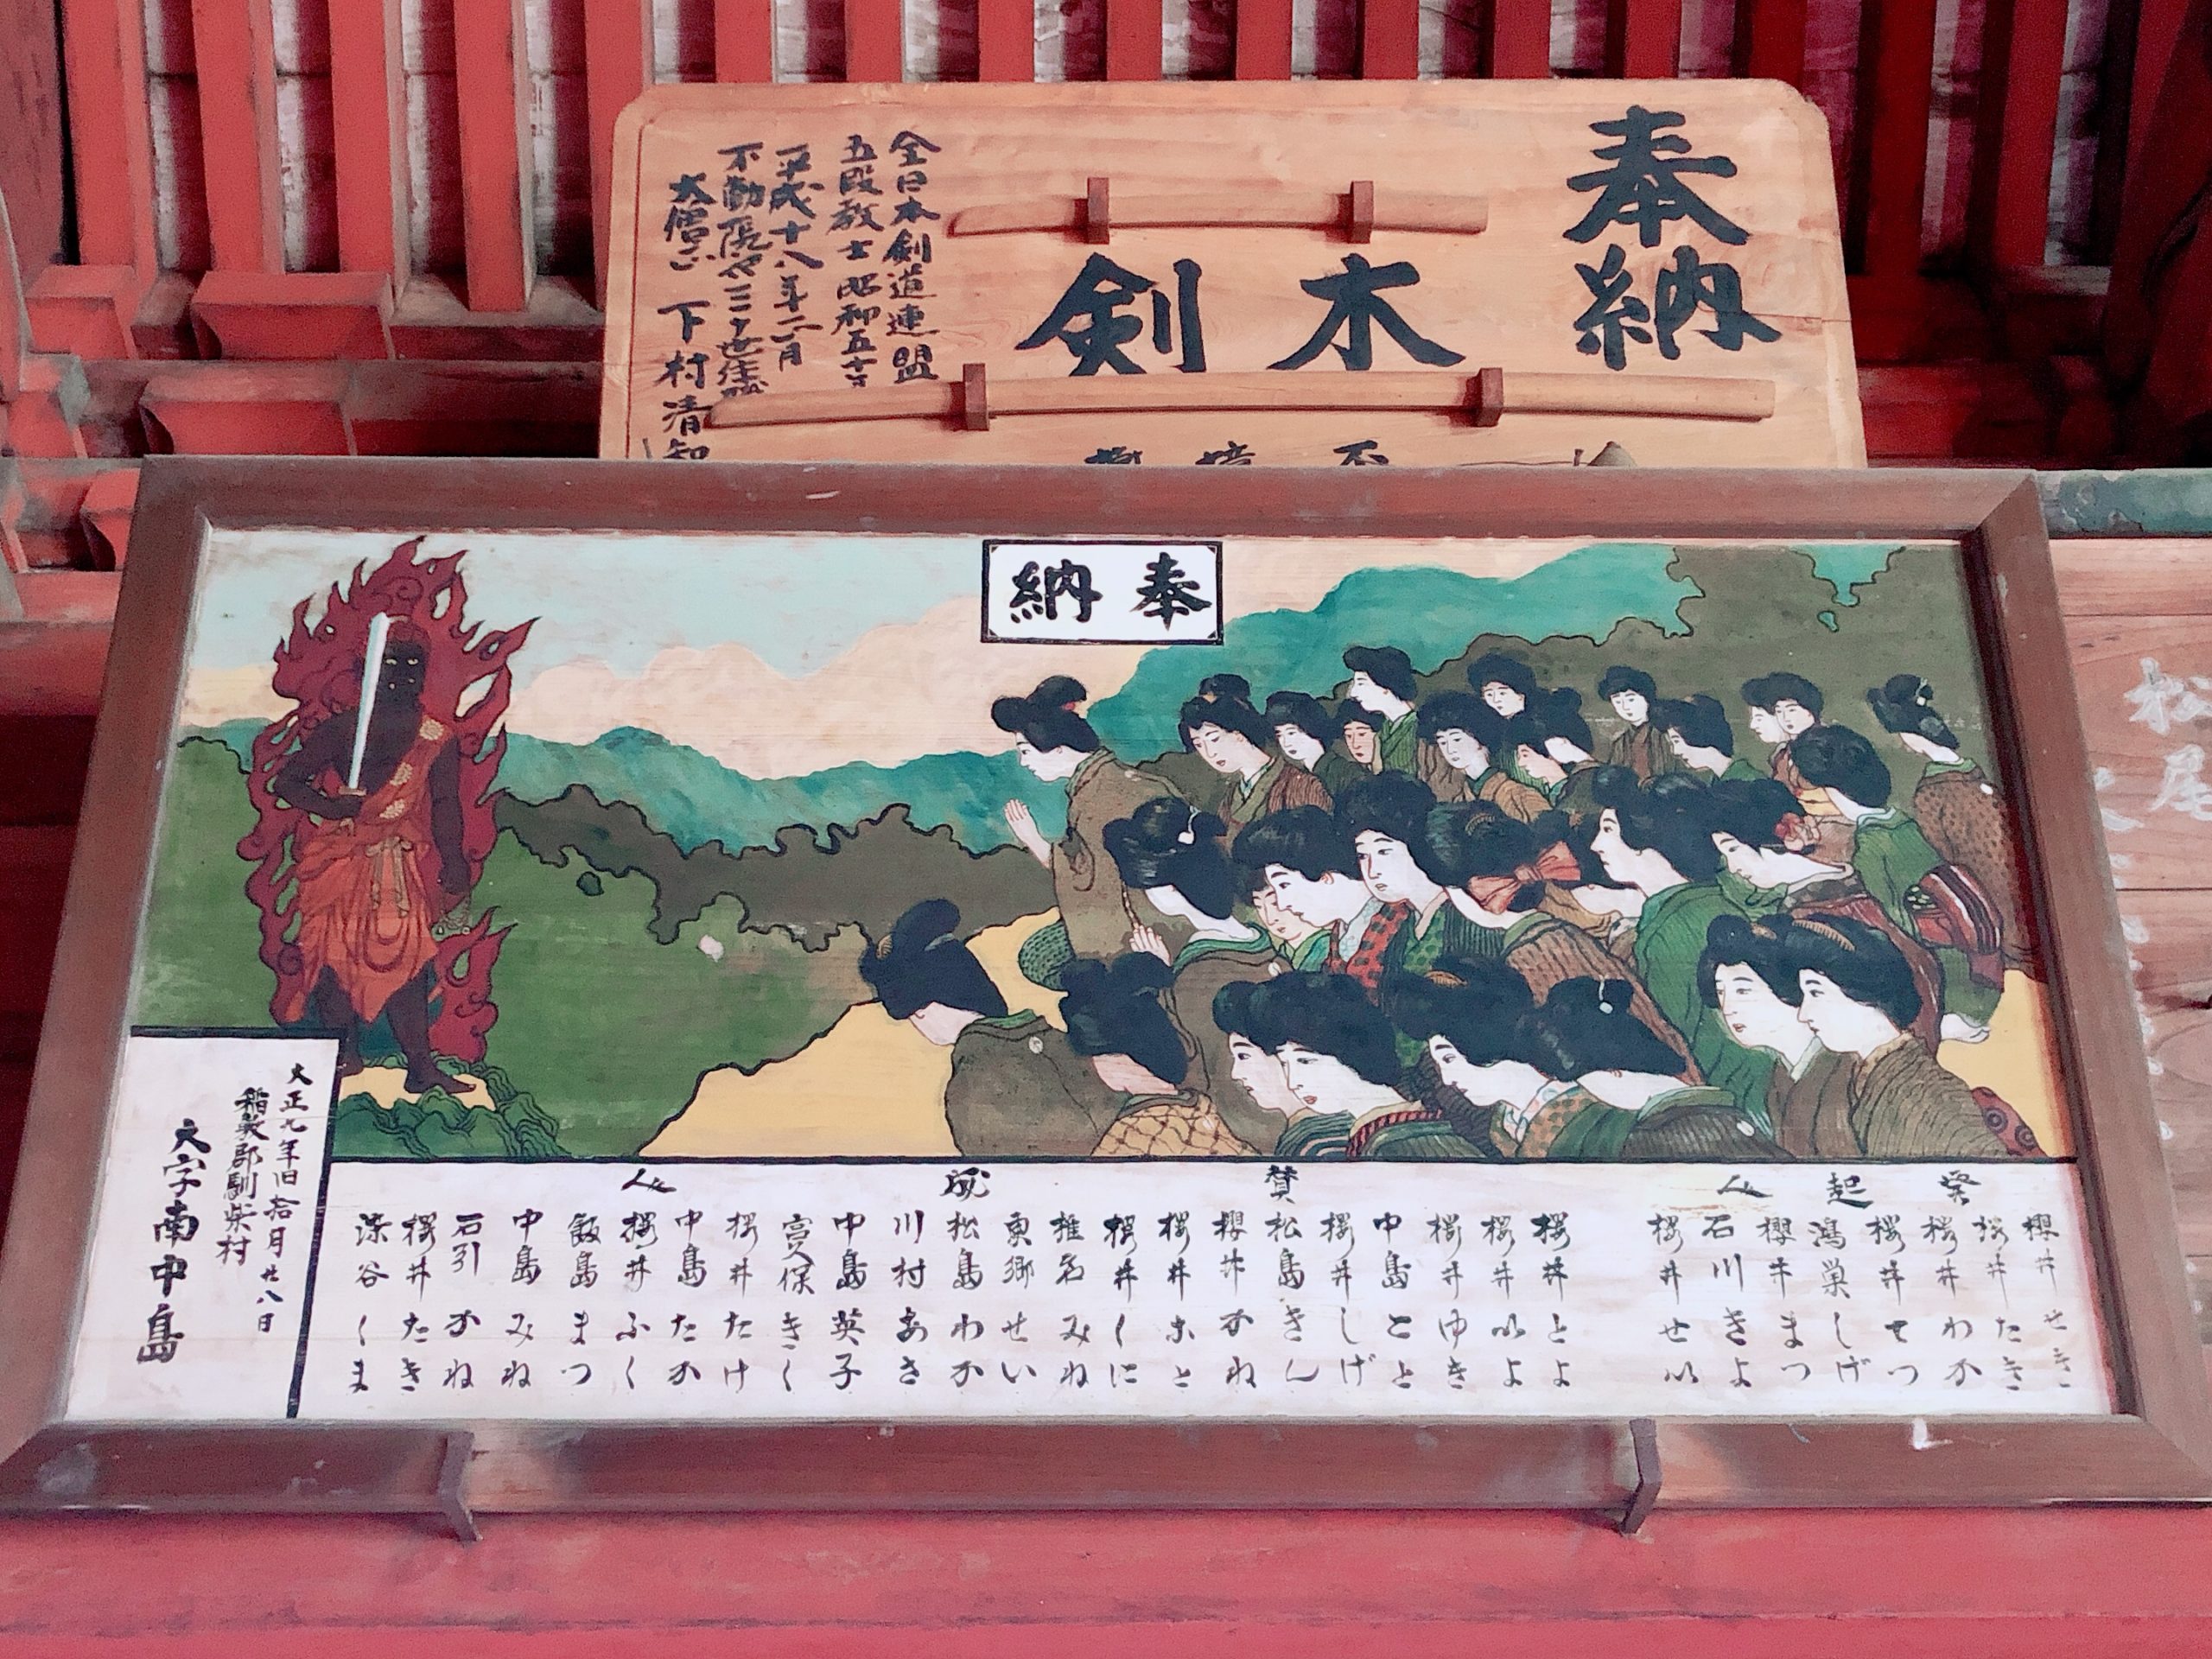 奉納
木剣
全日本剣道連盟
五段教士昭和五十
平成十八年二月
大僧正 下村清
奉納
発起人
櫻井せき
桜井たき
桜井わか
桜井てつ
鴻巣しげ
櫻井まつ
石川きよ
桜井せい
賛成人
桜井とよ
桜井いよ
桜井ゆき
中島とと
桜井しげ
松島きん
櫻井かね
桜井こと
桜井くに
椎名みね
東郷せい
松島わか
川村あさ
中島英子
宮保きく
桜井たけ
中島たか
桜井ふく
飯島まつ
中島みね
石引かね
桜井たき
深谷くま
大正七年旧拾月廿八日
稲敷郡馴柴村
大字南中島
松尾